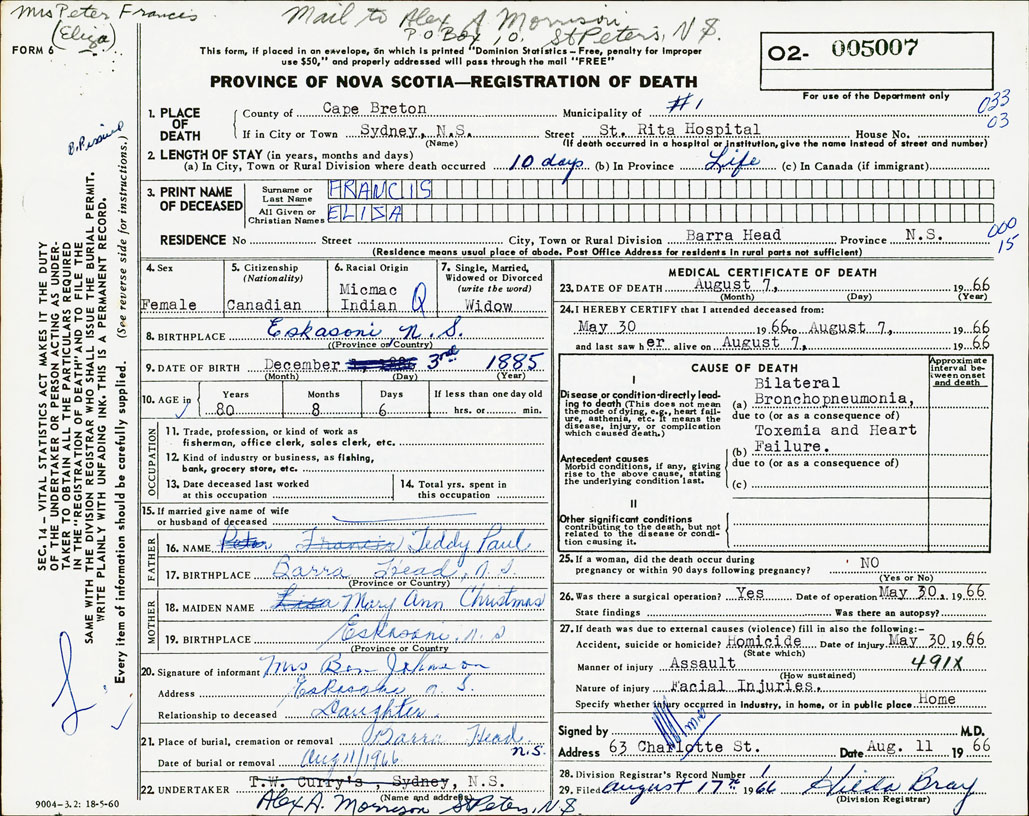 Mrs Peter Francis
(Eliza)
Mail to Alex A Morrison
P O Box 10, St Peters, N.S.
FORM 6
This form, if placed in an envelope, on which is printed "Dominion Statistics – Free, penalty for improper
use $50," and properly addressed will pass through the mail "FREE"
PROVINCE OF NOVA SCOTIA—REGISTRATION OF DEATH
02- 005007
For use of the Department only
033
03
1. PLACE OF DEATH
County of Cape Breton Municipality of #1
If in City or Town Sydney, N.S. Street St. Rita Hospital House No.
(Name) (If death occurred in a hospital or institution, give the name instead of street and number)
2. LENGTH OF STAY (in years, months and days)
(a) In City, Town or Rural Division where death occurred 10 days (b) In Province Life (c) In Canada (if immigrant)
3. PRINT NAME OF DECEASED
Surname or Last Name FRANCIS
All Given or Christian Names ELISA
RESIDENCE No Street City, Town or Rural Division Barra Head Province N.S.
(Residence means usual place of abode. Post Office Address for residents in rural parts not sufficient)
000
15
SEC. 14 – VITAL STATISTICS ACT MAKES IT THE DUTY
OF THE UNDERTAKER OR PERSON ACTING AS UNDER-
TAKER TO OBTAIN ALL THE PARTICULARS REQUIRED
IN THE "REGISTRATION OF DEATH" AND TO FILE THE
SAME WITH THE DIVISION REGISTRAR WHO SHALL ISSUE THE BURIAL PERMIT.
WRITE PLAINLY WITH UNFADING INK. THIS IS A PERMANENT RECORD.
Every item of information should be carefully supplied. (See reverse side for instructions.)
4. Sex
Female
5. Citizenship
(Nationality)
Canadian
6. Racial Origin
Micmac
Indian Q
7. Single, Married,
Widowed or Divorced
(write the word)
Widow
8. BIRTHPLACE Eskasoni N. S.
(Province or Country)
9. DATE OF BIRTH December 3rd 1885
(Month) (Day) (Year)
10. AGE in Years Months Days If less than one day old
80 8 6 hrs. or min.
OCCUPATION
11. Trade, profession, or kind of work as
fisherman, office clerk, sales clerk, etc.
12. Kind of industry or business, as fishing,
bank, grocery store, etc.
13. Date deceased last worked
at this occupation
14. Total yrs. spent in
this occupation
15. If married give name of wife
or husband of deceased
FATHER
16. NAME Peter Francis Teddy Paul
17. BIRTHPLACE Barra Head, N.S
(Province or Country)
MOTHER
18. MAIDEN NAME Mary Ann Christmas
19. BIRTHPLACE Eskasoni, N.S
(Province or Country)
20. Signature of informant Mrs Ben Johnson
Address Eskasoni N. S.
Relationship to deceased Daughter
21. Place of burial, cremation or removal Barra Head N.S.
Date of burial or removal Aug 11/1966
22 UNDERTAKER T.W. Curry's, Sydney, N.S.
(Name and address)
Alex A. Morrison St Peters, N.S
9004-3.2: 18-5-60
MEDICAL CERTIFICATE OF DEATH
23. DATE OF DEATH August 7, 1966
(Month) (Day) (Year)
24. I HEREBY CERTIFY that I attended deceased from:
May 30 1966 to August 7, 1966
and last saw her alive on August 7, 1966
CAUSE OF DEATH
Approximate
interval be-
tween onset
and death
I
Disease or condition directly lead-
ing to death (This does not mean
the mode of dying, e.g., heart fail-
ure, asthenia, etc. It means the
disease, injury, or complication
which caused death.)
Bilateral
(a) Bronchopneumonia,
due to (or as a consequence of)
Toxemia and Heart
(b) Failure.
due to (or as a consequence of)
(c)
Antecedent causes
Morbid conditions, if any, giving
rise to the above cause, stating
the underlying condition last.
II
Other significant conditions
contributing to the death, but not
related to the disease or condi-
tion causing it.
25. If a woman, did the death occur during
pregnancy or within 90 days following pregnancy? NO
(Yes or No)
26. Was there a surgical operation? Yes Date of operation May 30, 1966
State findings Was there an autopsy?
27. If death was due to external causes (violence) fill in also the following:–
Accident, suicide or homicide? Homicide Date of injury May 30 1966
(State which)
Manner of injury Assault 491X
(How sustained)
Nature of injury Facial Injuries.
Specify whether injury occurred in industry, in home, or in public place Home
Signed by M.D.
Address 63 Charlotte St. Date Aug. 11 1966
28. Division Registrar's Record Number 1
29. Filed August 17th 1966 Hilda Bray
(Division Registrar)